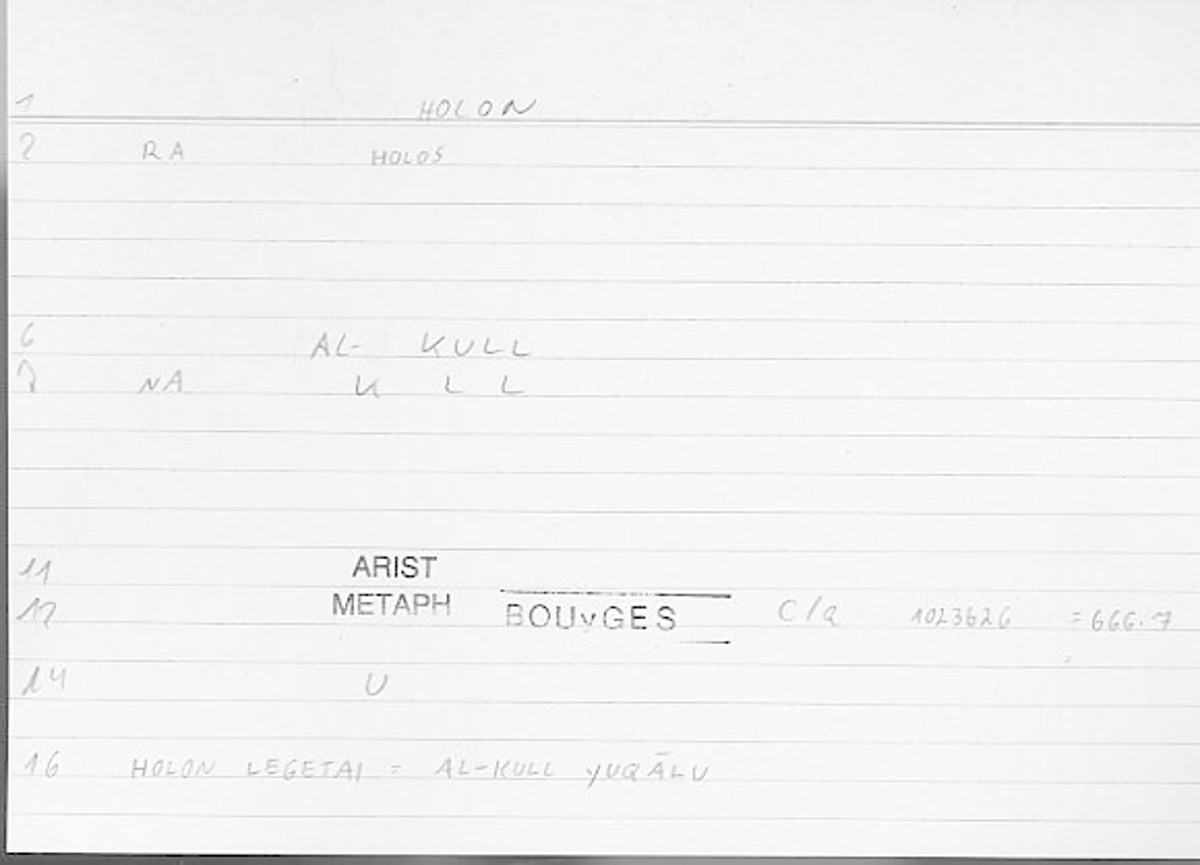 1 HOLON
2 RA HOLOS
6 AL- KULL
7 NA K L L
11 ARIST
12 METAPH BOUyGES C/a 1023b26 =666.7
14 U
16 HOLON LEGETAI = AL-KULL YUQĀLU